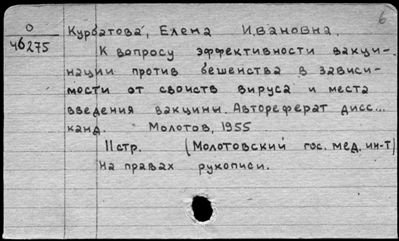 6
О
46275
Курбатова, Елена Ивановна.
К вопросу эффективности вакци-
нации против бешенства в зависи-
мости от свойств вируса и места
введения вакцины. Автореферат дисс...
канд. Молотов, 1955
11 стр. (Молотовский гос. мед. ин-т)
На правах рукописи.